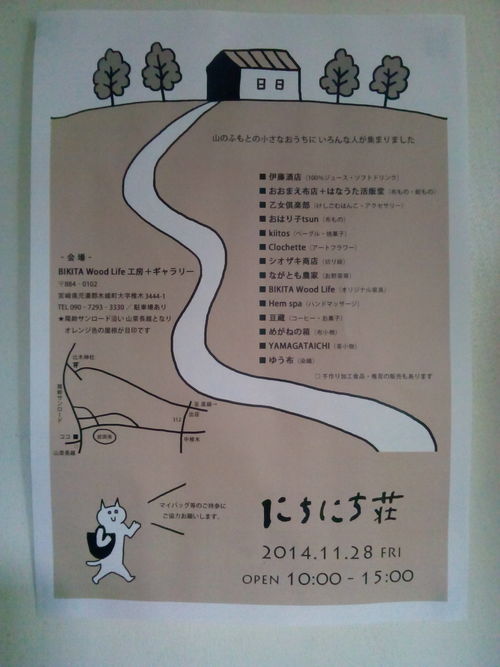 山のふもとの小さなおうちに いろんな人が集まりました
■ 伊藤酒店（100%ジュース・ソフトドリンク）
■ おおまえ布店＋はなうた活版堂（布もの・紙もの）
■ 乙女倶楽部（けしごむはんこ・アクセサリー）
■ おはり子tsun（布もの）
■ kiitos（ベーグル・焼菓子）
■ Clochette（アートフラワー）
■ シオザキ商店（切り絵）
■ ながとも農家（お野菜等）
■ BIKITA Wood Life（オリジナル家具）
■ Hem spa（ハンドマッサージ）
■ 豆蔵（コーヒー・お菓子）
■ めがねの箱（布小物）
■ YAMAGATAICHI（革小物）
■ ゆう布（染織）
□ 手作り加工食品・雑貨の販売もあります
- 会場 -
BIKITA Wood Life 工房＋ギャラリー
〒884-0102
宮崎県児湯郡木城町大字椎木 3444-1
TEL 090-7293-3330 ／ 駐車場あり
★尾鈴サンロード沿い 山菜長越となり
オレンジ色の屋根が目印です
比木神社
尾鈴サンロード
至 高鍋→
出店
312
ココ■
中椎木
山菜長越
マイバッグ等のご持参に
ご協力お願いします。
にちにち荘
2014.11.28 FRI
OPEN 10:00 - 15:00